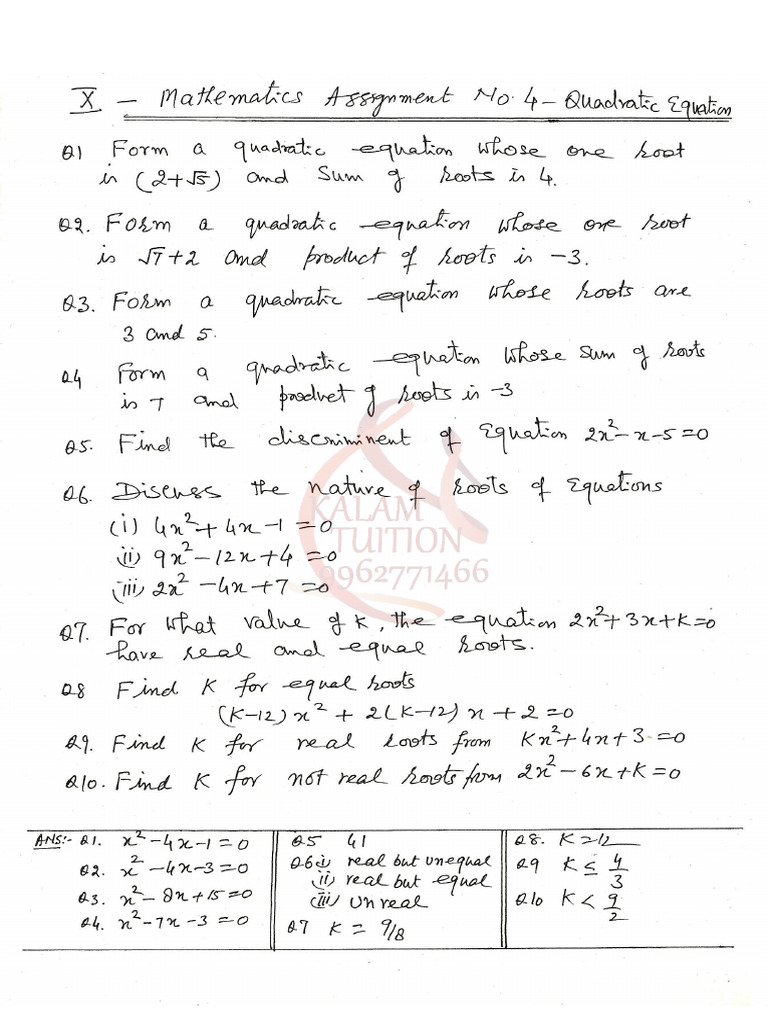 X - Mathematics Assignment No. 4 - Quadratic Equation
Q1 Form a quadratic equation whose one root
is (2+√5) and Sum of roots is 4.
Q2. Form a quadratic equation whose one root
is √7+2 and product of roots is -3.
Q3. Form a quadratic equation whose roots are
3 and 5.
Q4 Form a quadratic equation whose sum of roots
is 7 and product of roots is -3
Q5. Find the discriminent of Equation 2x²-x-5=0
Q6. Discuss the nature of roots of Equations
(i) 4x²+4x-1=0
(ii) 9x²-12x+4=0
(iii) 2x²-4x+7=0
KALAM
TUITION
9962771466
Q7. For what value of K, the equation 2x²+3x+K=0
have real and equal roots.
Q8 Find K for equal roots
(K-12)x² + 2(K-12)x + 2=0
Q9. Find K for real roots from Kx²+4x+3=0
Q10. Find K for not real roots from 2x²-6x+K=0
ANS:- Q1. x²-4x-1=0
Q2. x²-4x-3=0
Q3. x²-8x+15=0
Q4. x²-7x-3=0
Q5 41
Q6 (i) real but unequal
(ii) real but equal
(iii) Unreal
Q7 K = 9/8
Q8. K=12
Q9 K ≤ 4/3
Q10 K < 9/2